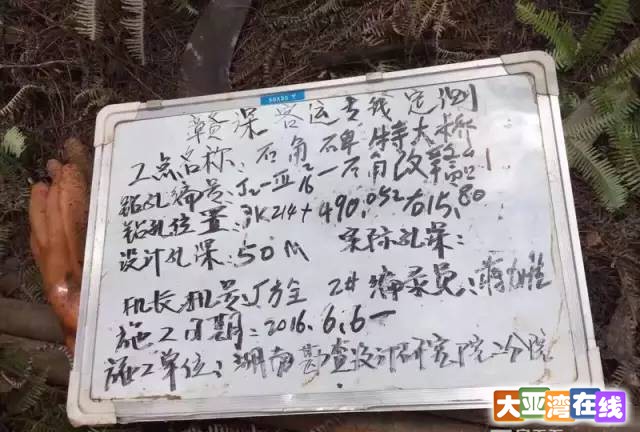 50X35
赣深客运专线定测
工点名称：石角碑特大桥
钻孔编号：Jz-Ⅲ16-石角改赣
钻孔位置：DK214+490.052右15.80
设计孔深：50M 实际孔深：
机长 机员 2#编录员：
施工日期：2016.6.6—
施工单位：湖南勘查设计研究院二分院
大亚湾在线